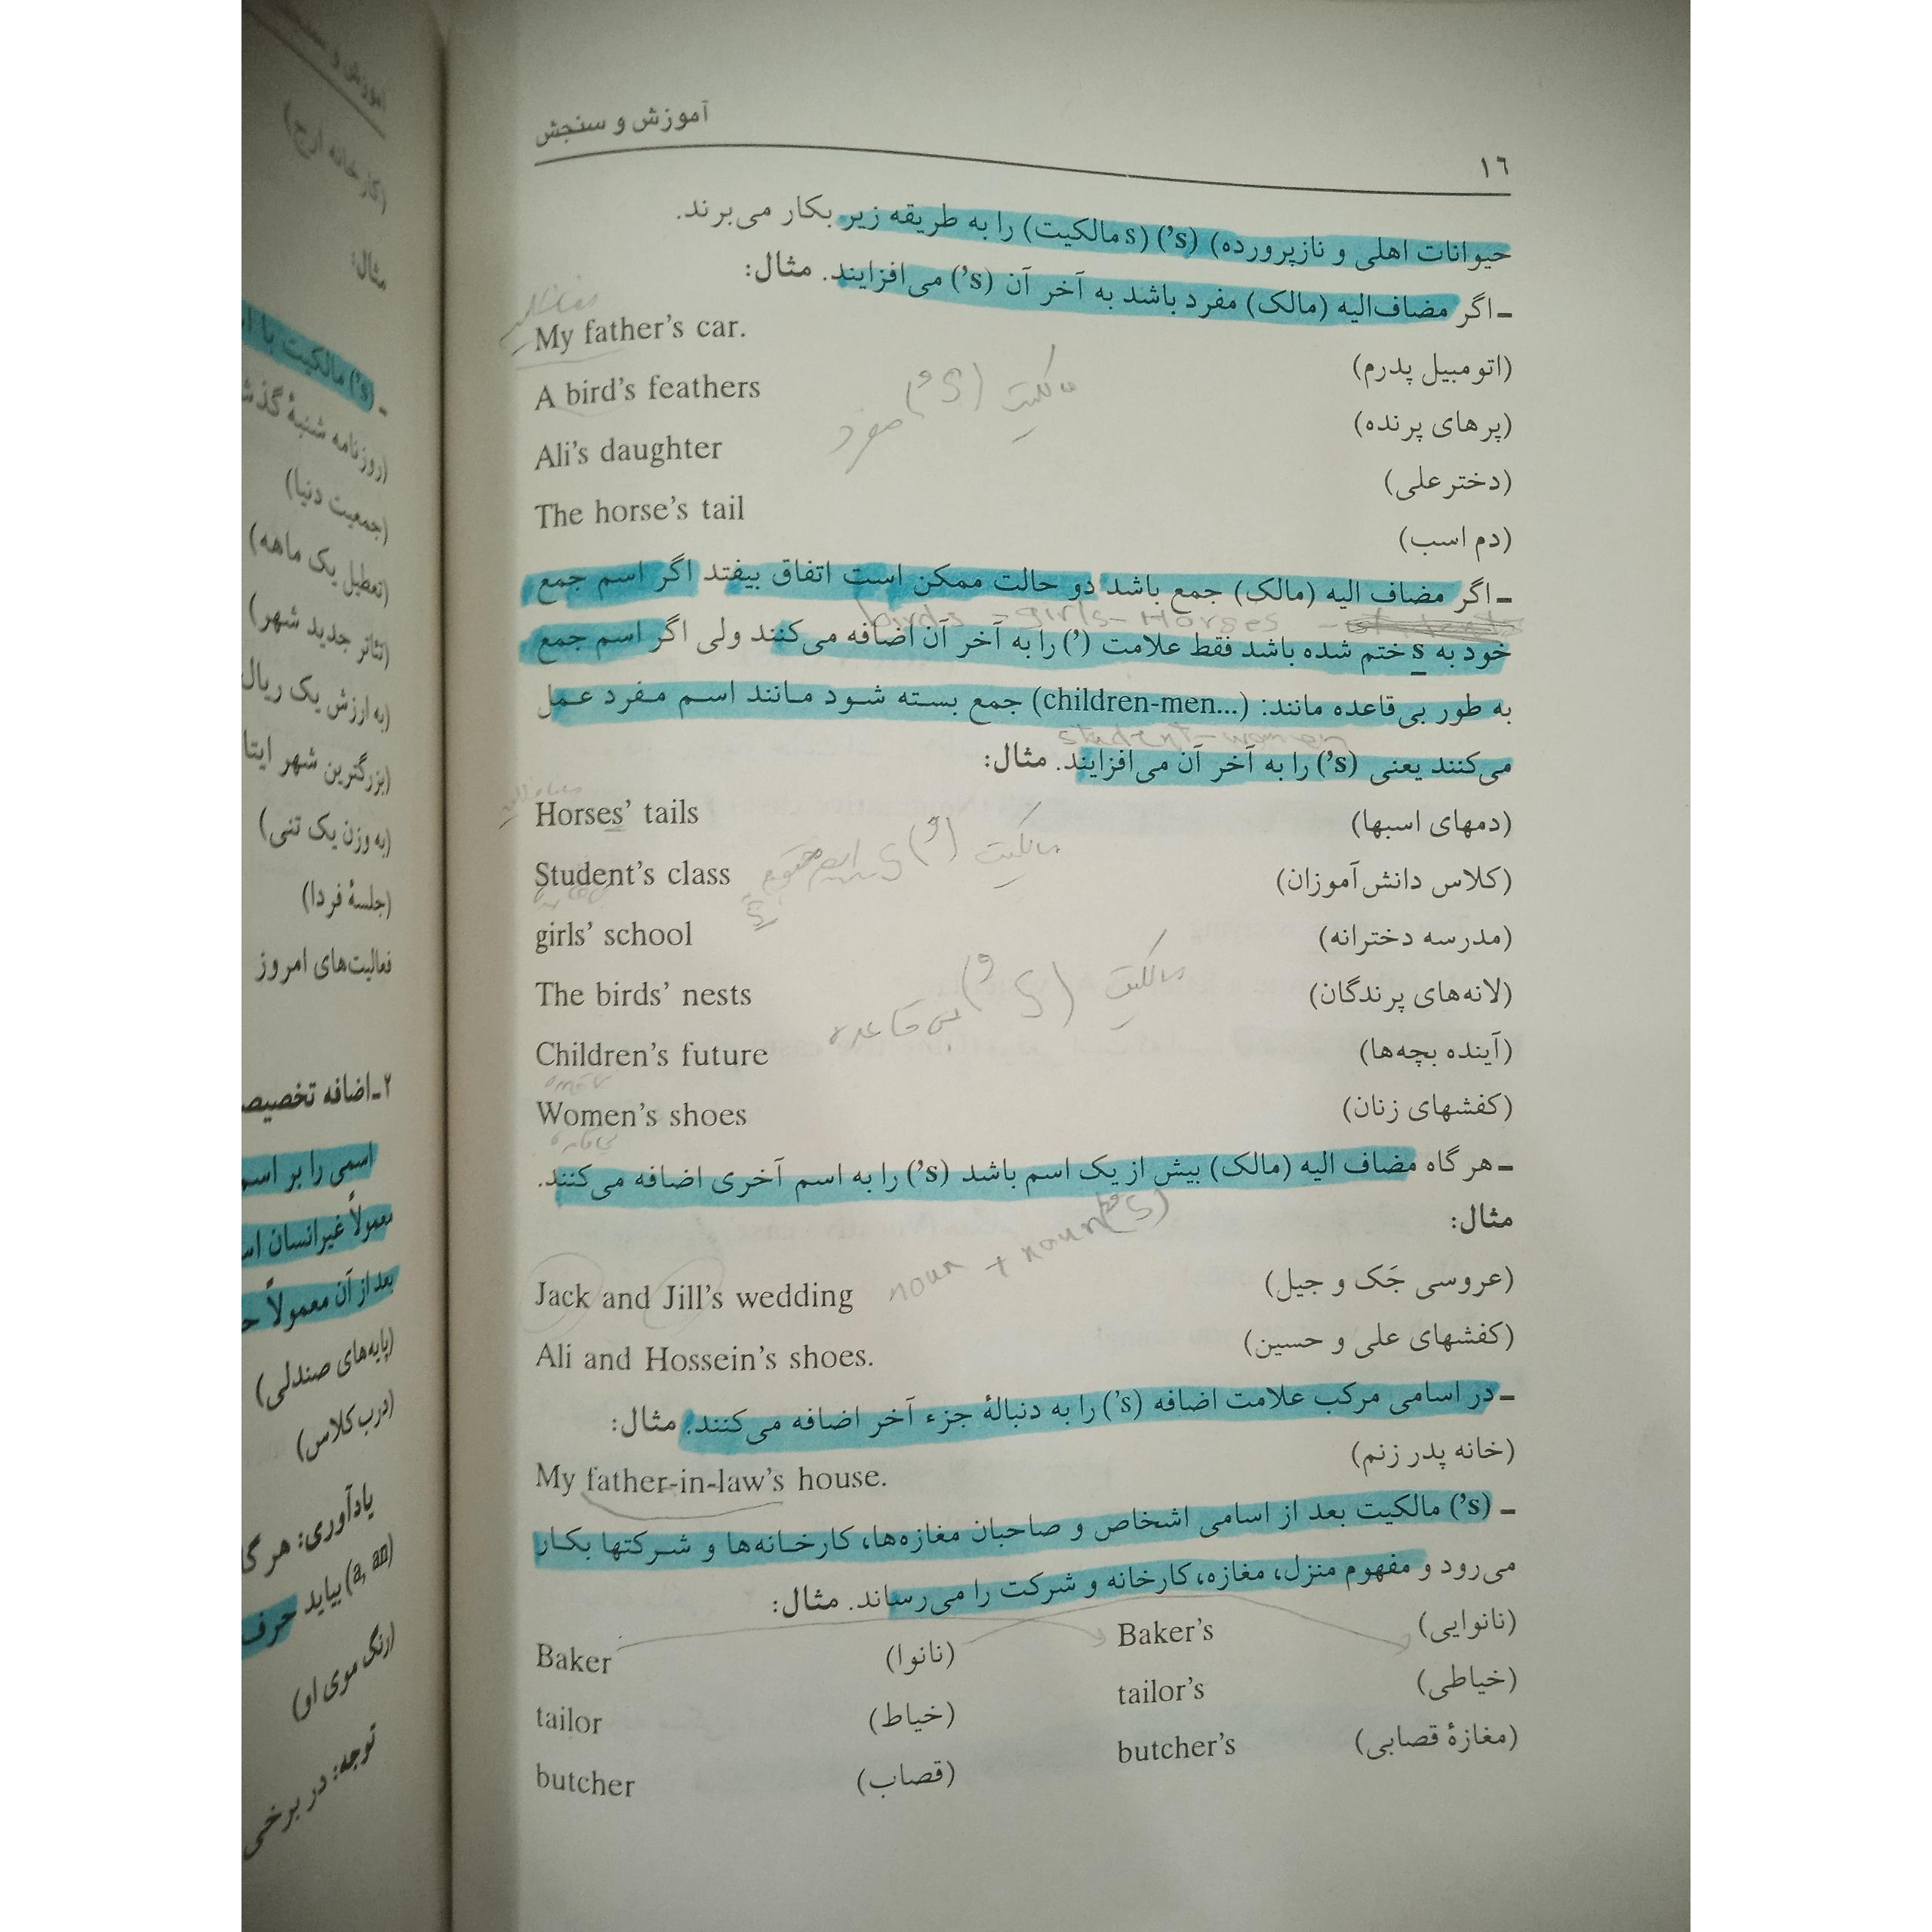 آموزش و سنجش
١٦
حیوانات اهلی و نازپرورده) (s’) (s مالکیت) را به طریقه زیر بکار می‌برند.
ـ اگر مضاف‌الیه (مالک) مفرد باشد به آخر آن (s’) می‌افزایند. مثال:
My father’s car. (اتومبیل پدرم)
A bird’s feathers (پرهای پرنده)
مالکیت (’S) مفرد
Ali’s daughter (دختر علی)
The horse’s tail (دم اسب)
ـ اگر مضاف الیه (مالک) جمع باشد دو حالت ممکن است اتفاق بیفتد اگر اسم جمع
birds - girls - Horses -
خود به s ختم شده باشد فقط علامت (’) را به آخر آن اضافه می‌کنند ولی اگر اسم جمع
به طور بی‌قاعده مانند: (children-men...) جمع بسته شود مانند اسم مفرد عمل
student - women
می‌کنند یعنی (s’) را به آخر آن می‌افزایند. مثال:
Horses’ tails (دمهای اسبها)
Student’s class (کلاس دانش‌آموزان)
girls’ school (مدرسه دخترانه)
The birds’ nests (لانه‌های پرندگان)
مالکیت (’S) بی قاعده
Children’s future (آینده بچه‌ها)
Women’s shoes (کفشهای زنان)
ـ هر گاه مضاف الیه (مالک) بیش از یک اسم باشد (s’) را به اسم آخری اضافه می‌کنند.
مثال:
noun + noun (’S)
Jack and Jill’s wedding (عروسی جَک و جیل)
Ali and Hossein’s shoes. (کفشهای علی و حسین)
ـ در اسامی مرکب علامت اضافه (s’) را به دنبالهٔ جزء آخر اضافه می‌کنند. مثال:
My father-in-law’s house. (خانه پدر زنم)
ـ (s’) مالکیت بعد از اسامی اشخاص و صاحبان مغازه‌ها، کارخانه‌ها و شرکتها بکار
می‌رود و مفهوم منزل، مغازه، کارخانه و شرکت را می‌رساند. مثال:
Baker (نانوا) Baker’s (نانوایی)
tailor (خیاط) tailor’s (خیاطی)
butcher (قصاب) butcher’s (مغازهٔ قصابی)
آموزش و
(کارخانه ارج)
مثال:
ـ (s’) مالکیت با
(روزنامه شنبهٔ
(جمعیت دنیا)
(تعطیل یک ماهه)
(تئاتر جدید شهر)
(به ارزش یک ریال
(بزرگترین شهر
(به وزن یک تنی)
(جلسهٔ فردا)
فعالیت‌های امروز
٢ـ اضافه
اسمی را بر
معمولاً غیرانسان
بعد از آن معمولاً
(پایه‌های صندلی)
(درب کلاس)
یادآوری: هر
(a, an) بیاید حرف
(رنگ موی او)
توجه: در برخی